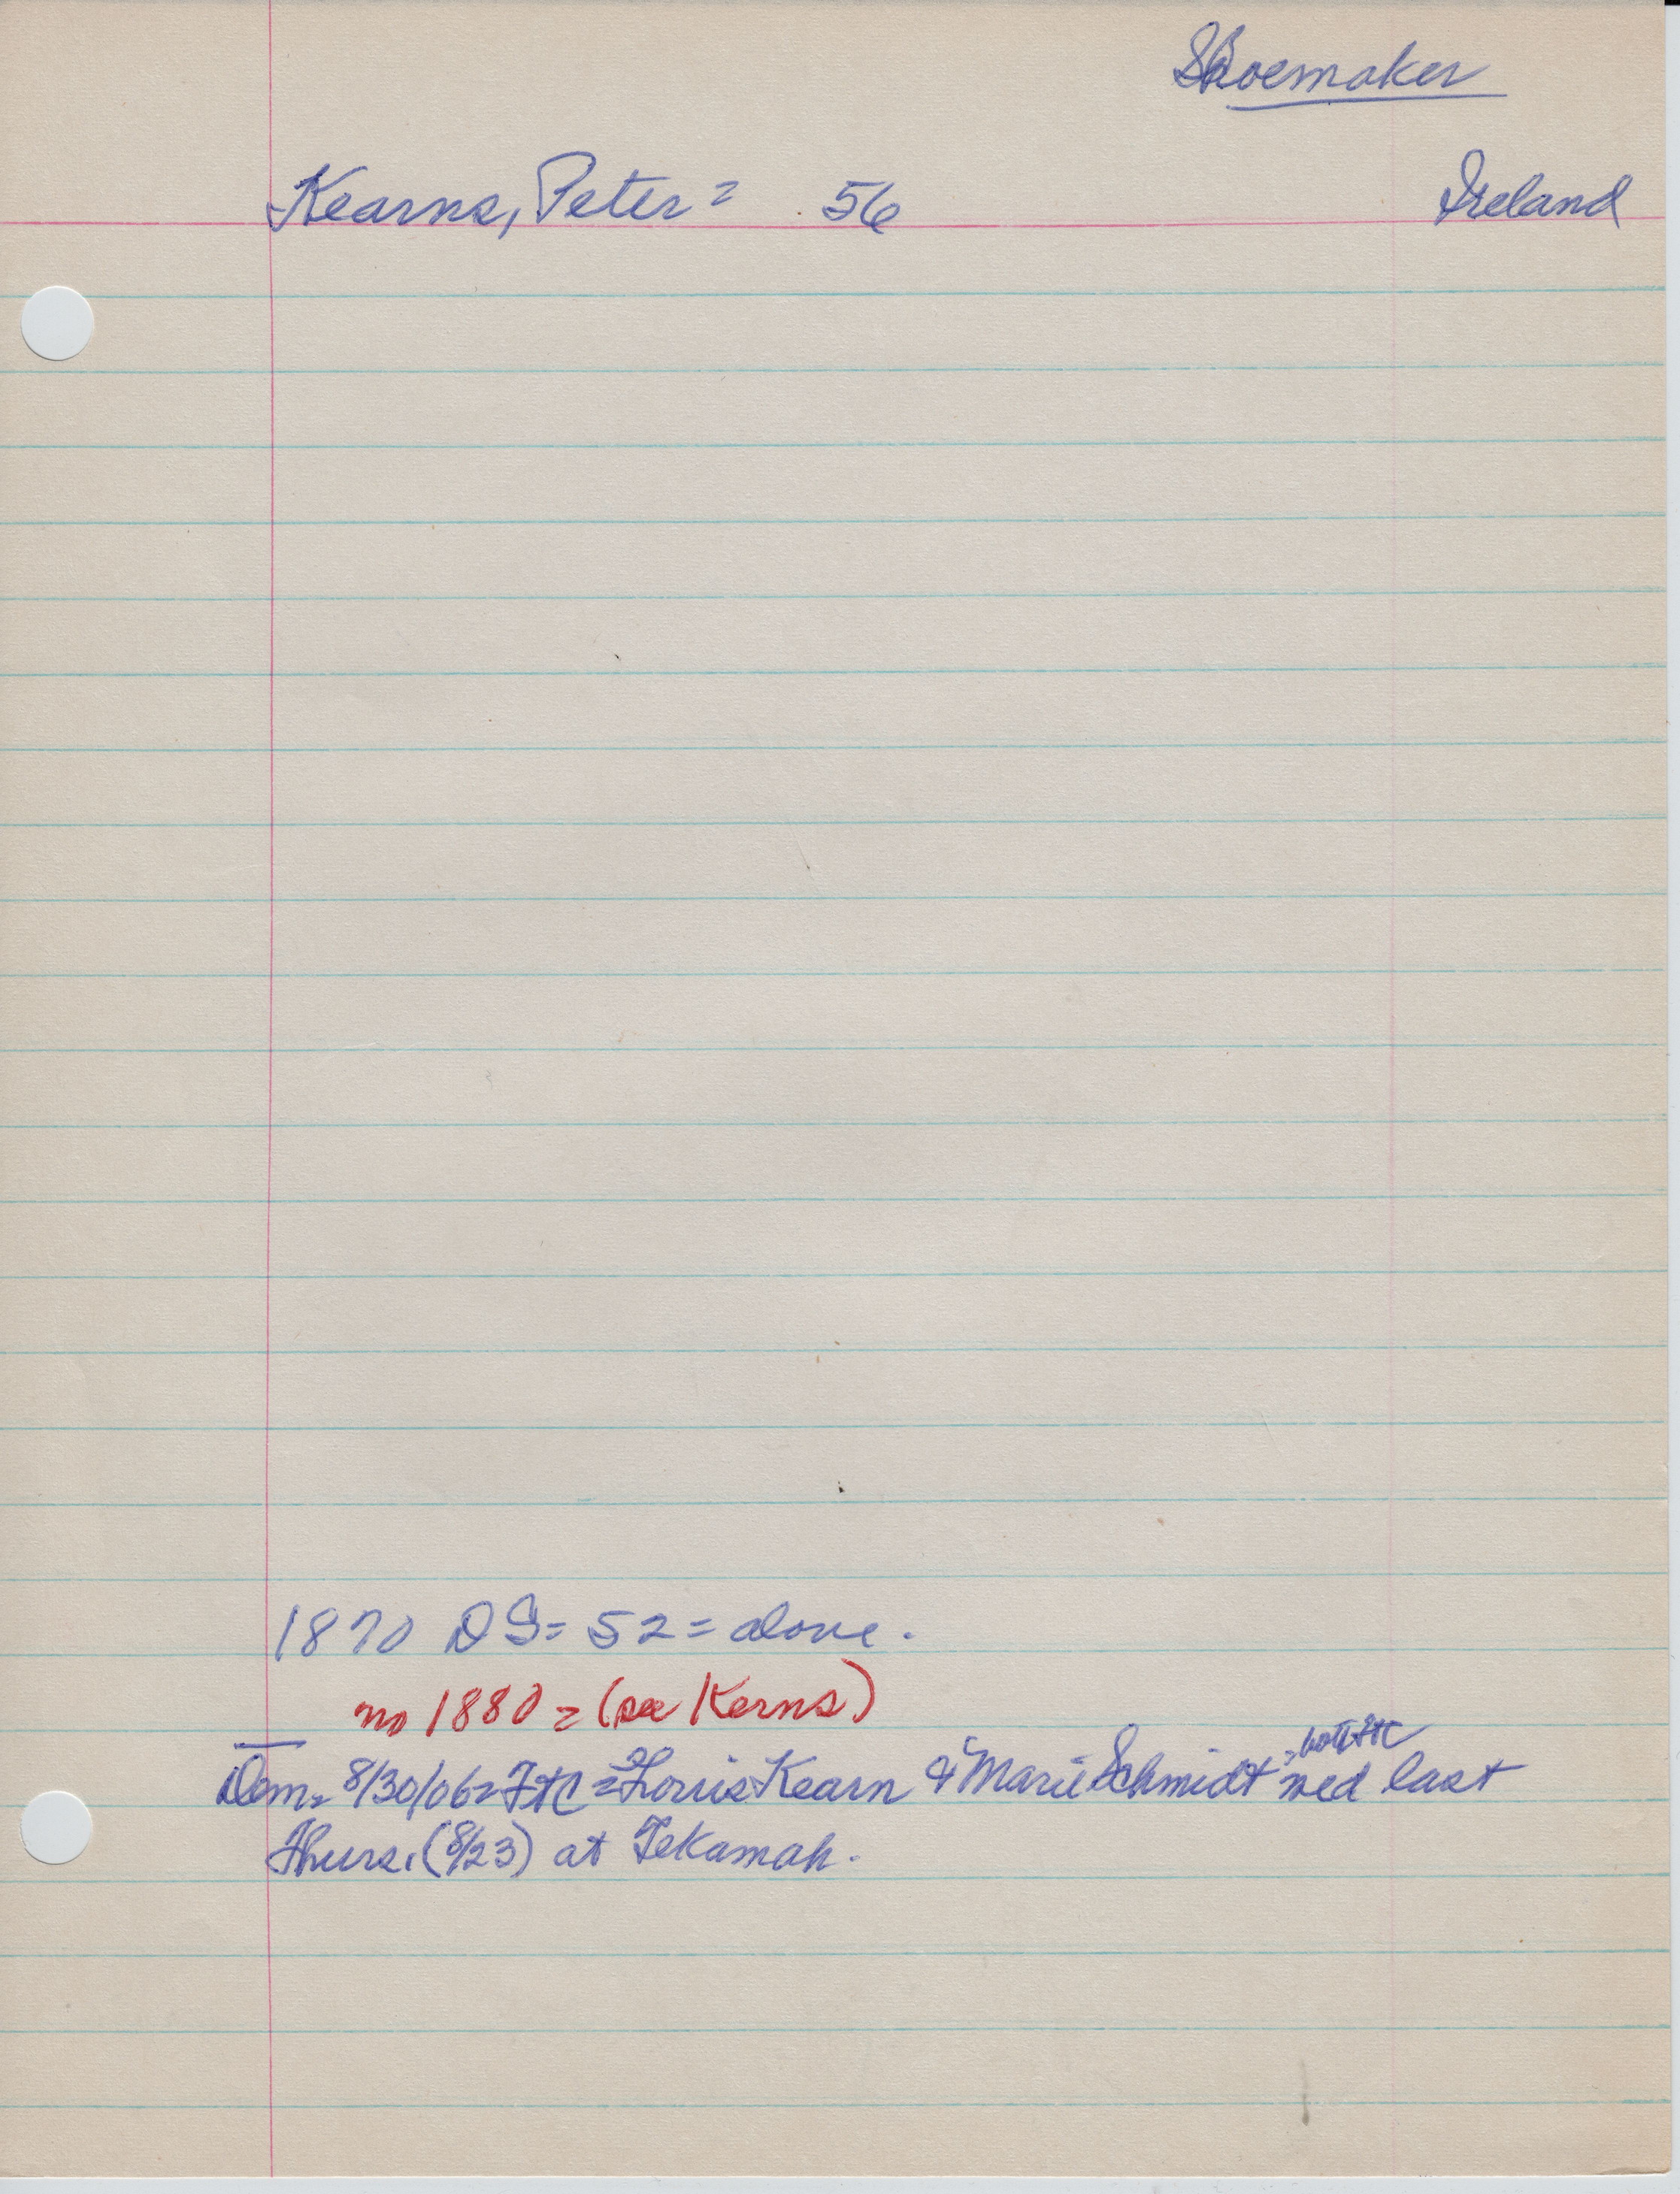 Shoemaker
Kearns, Peter = 56 Ireland
1870 DS = 52 = alone.
no 1880 = (see Kerns)
= both FtC
Dem = 8/30/06 = FtC = Louis Kearn & Marie Schmidt wed last
Thurs. (8/23) at Tekamah.